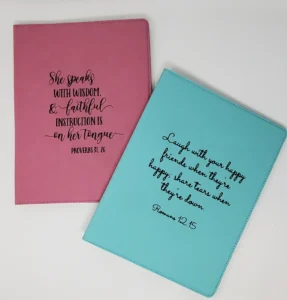 She speaks
WITH WISDOM,
& faithful
INSTRUCTION IS
on her tongue
PROVERBS 31:26
Laugh with your happy
friends when they're
happy; share tears when
they're down
Romans 12:15